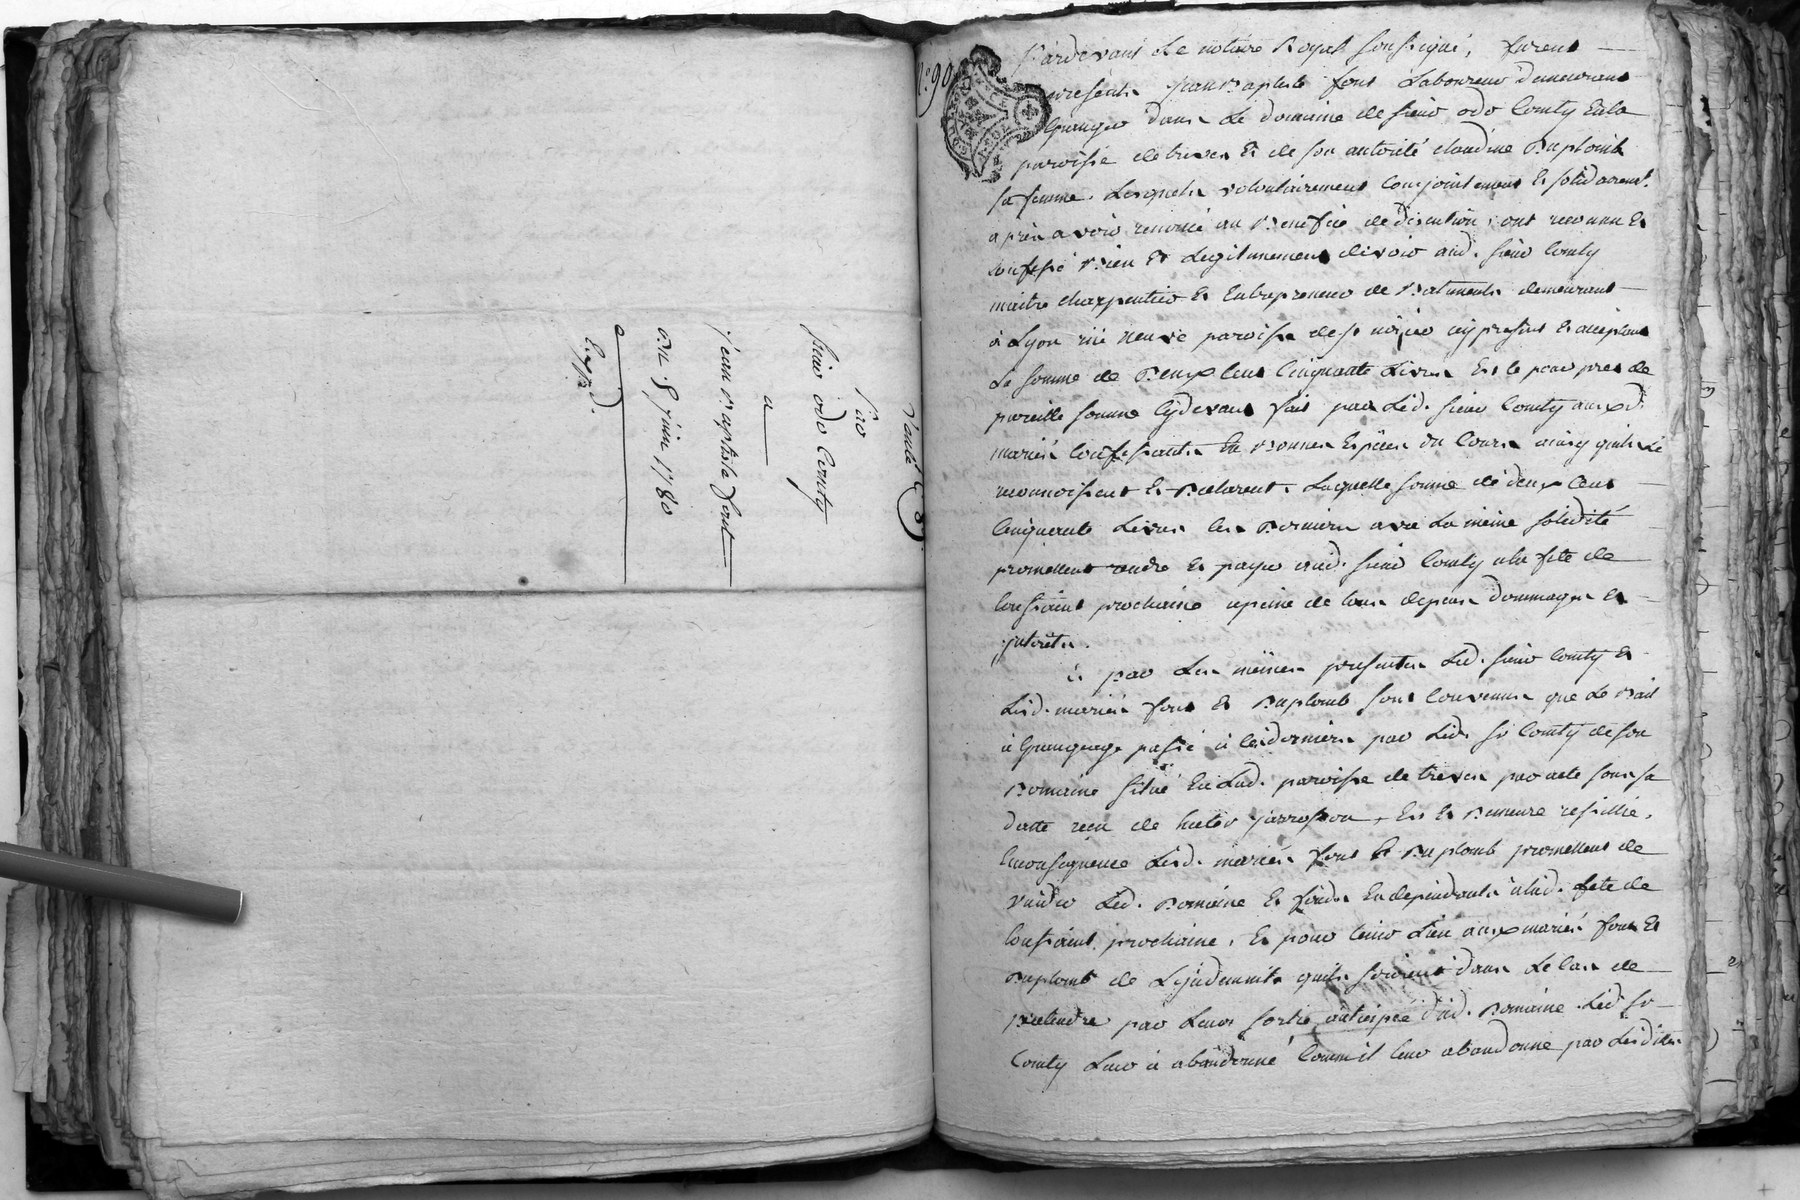 Vante
Par
sieur odo Comty
a
jean Baptiste font
Du 8 juin 1780
Expd.
N.° 90
Pardevant Le notaire Royal soussigné, furent
présents jean Baptiste font Laboureur demeurant
Granger dans Le domaine de sieur odo Comty En la
paroisse de treves Et de son autorité claudine Duplomb
sa femme, Lesquels volontairement Conjointement Et solidairemt.
après avoir renoncé au Benefice de discution, ont reconnu Et
confessé Bien Et Legitimement devoir aud. sieur Comty
maitre charpentier Et Entrepreneur de Batiments demeurant
à Lyon rüe neuve paroisse de st nizier icy present Et acceptant
La somme de Deux Cent Cinquante Livres Et le pour prest de
pareille somme Cydevant fait par Led. sieur Comty auxd.
mariés Confessants En Bonnes Espèces du Cours ainsy quils Le
reconnoissent Et Declarent, Laquelle somme de deux Cent
Cinquante Livres Ces Derniers avec La même solidité
promettent rendre Et payer aud. sieur Comty a la fete de
toussaint prochaine a peine de tous depens dommages Et
interets.
Et par Les mêmes presentes Led. sieur Comty Et
Lesd. mariés font Et Duplomb sont Convenus que Le Bail
à Grangeage passé à Ces derniers par Led. sr Comty de son
Domaine situé En Lad. paroisse de treves par acte sous sa
datte reçu de jarrosson, Est Et Demeure resillié,
En consequence Lesd. mariés font Et Duplomb promettent de
vuider Led. Domaine Et fonds En dependants a lad. fete de
toussaint prochaine, Et pour tenir Lieu aux mariés font Et
Duplomb de Lindemnité quils seroient dans Le Cas de
pretendre par Leur sortie anticipée dud. Domaine Led. sr
Comty Leur à abandonné Comme il leur abandonne par Lesdites